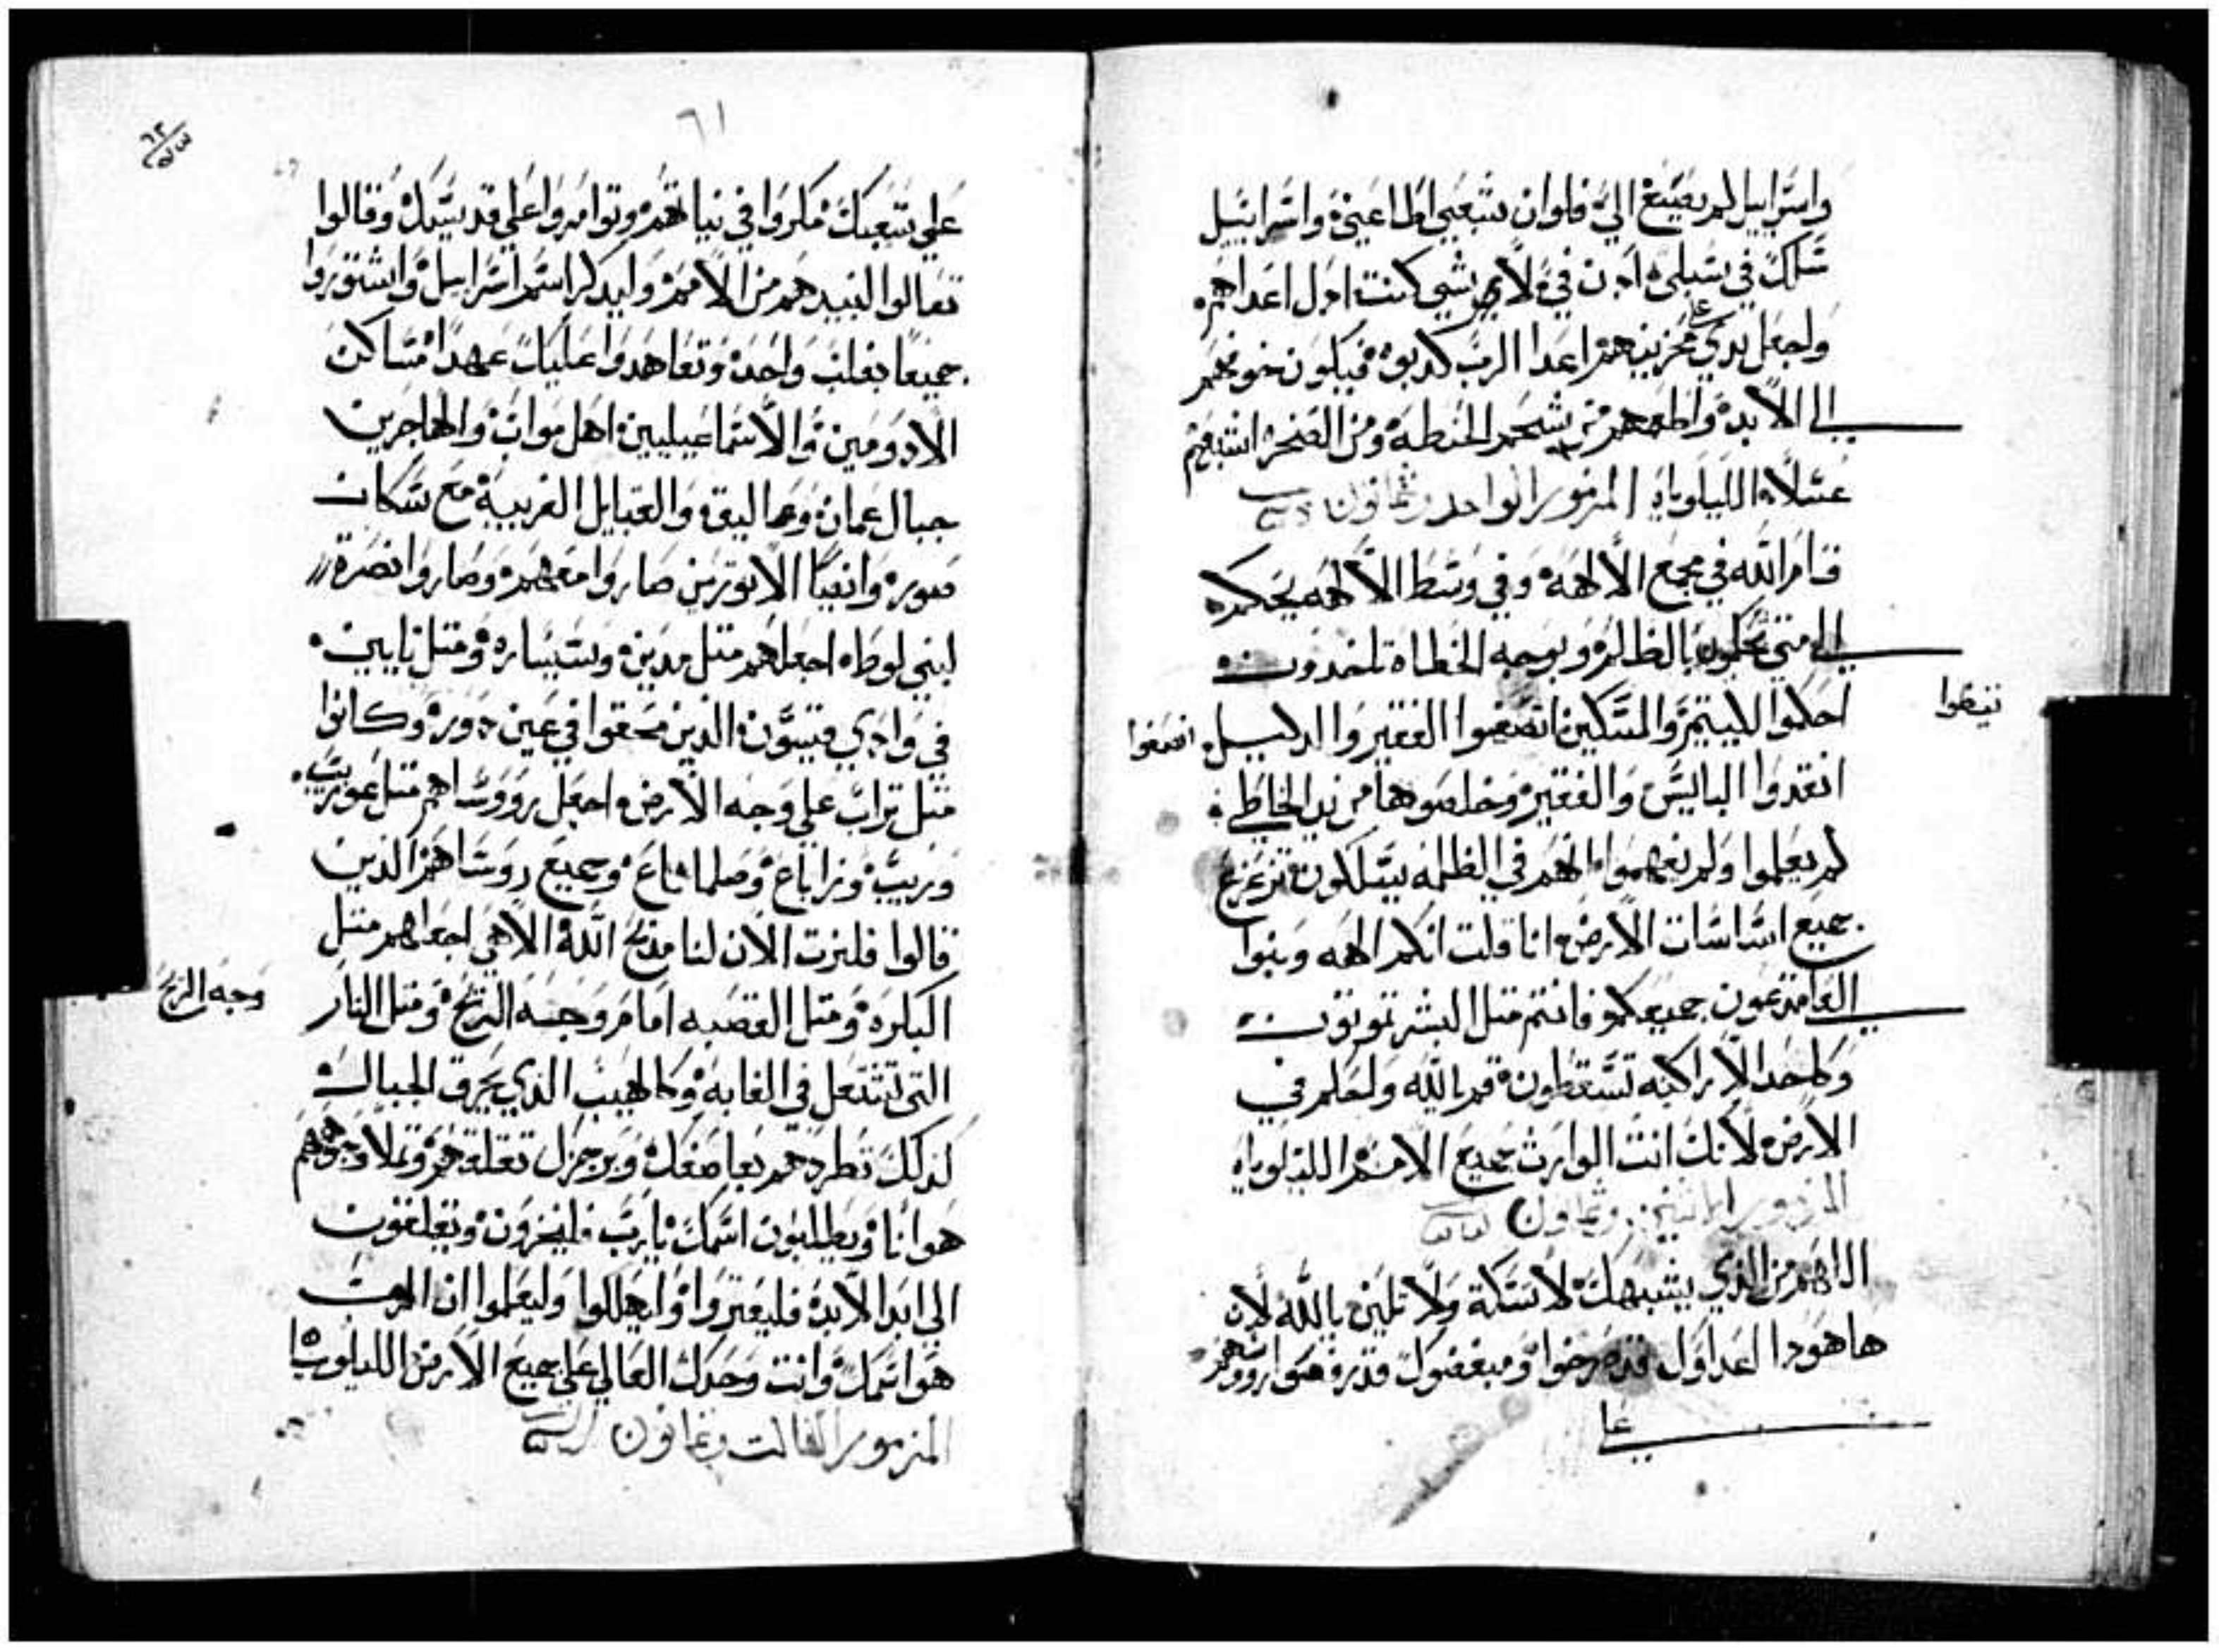 واسرايل لم يصغ الي فلوان شعبي اطاعني واسراييل
سلك في سبلي اذن في لاي شي كنت اذل اعداهم
واجعل يدي علي محزنيهم اعدا الرب كدبوه فيكون خوفهم
الي الابد واطعمهم من شحم الحنطة ومن الصخره اشبعهم
عسلا الليلوياه المزمور الواحد وثمانون
قام الله في مجمع الالهه وفي وسط الالهه يحكم
الي متي تحكمون بالظلم وبوجه الخطاة تاخدون
احكموا لليتيم والمسكين انصفوا الفقير والدليل
انصفوا
انقدوا الباليس والفقير وخلصوهما من يد الخاطي
لم يعلموا ولم يفهموا لانهم في الظلمه يسلكون تتزعزع
جميع اساسات الارض انا قلت انكم الهه وبنوا
العلا تدعون جميعكم فانتم متل البشر تموتون
وكاحد الاراكنه تسقطون قم يالله ولتحكم في
الارض لانك انت الوارث جميع الامم الليلوياه
المزمور الثاني وثمانون
اللهم من الذي يشبهك لا تسكة ولا تلين يالله لان
ها هودا اعداوك قد صرخوا ومبغضوك قد رفعوا رووسهم
علي
٦١
علي شعبك مكروا في نياتهم وتوامروا علي قديسيك وقالوا
تعالوا لنبيدهم من الامم ولا يدكر اسم اسراييل واشتوروا
جميعا بقلب واحد وتعاهدوا عليك عهدا مساكن
الادوميين والاسماعيليين اهل مواب والهاجرين
جبال عمان وعماليق والقبايل الغريبة مع سكان
صور وانضا الاتوريين صاروا معهم وصاروا نصرة
لبني لوط اجعلهم متل مدين وسيساره ومتل يابين
في وادي قيسون الذين محقوا في عين دوره وكانوا
متل تراب علي وجه الارض اجعل رووساهم متل عوريب
وزيب وزاباع وصلماناع وجميع روساهم الذين
قالوا فلنرت الان لنا مذبح الله الاهي اجعلهم متل
البكره ومتل القصبه امام وجه الريح ومتل النار
وجه الريح
التي تشتعل في الغابه وكالهيب الذي يحرق الجبال
كذلك تطردهم بعاصفك وبرجزك تقلقهم وتملا وجوههم
هوانا ويطلبون اسمك يارب فليخزون ويقلقون
الي ابد الابد فليعتروا وليهلكوا وليعلموا ان الرب
هو اسمك وانت وحدك العالي علي جميع الارض الليلويا
المزمور الثالت وثمانون